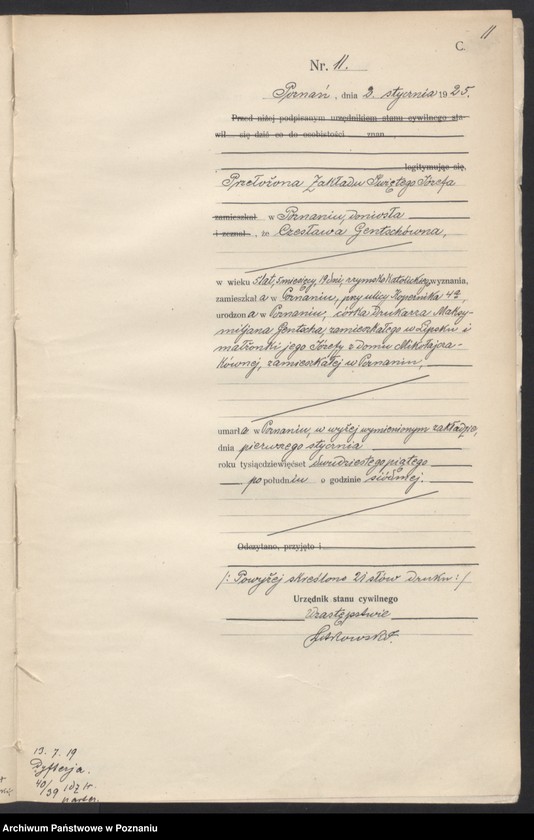 11
C.
Nr. 11.
Poznań, dnia 2. stycznia 1925.
Przed niżej podpisanym urzędnikiem stanu cywilnego sta-
wił się dziś co do osobistości znan
legitymując się,
Przełożona Zakładu Świętego Józefa
zamieszkał w Poznaniu, doniosła
i zeznał, że Czesława Gentschówna,
w wieku 5 lat, 5 miesięcy, 19 dni, rzymsko katolickiego wyznania,
zamieszkała w Poznaniu, przy ulicy Kopernika 4a,
urodzona w Poznaniu, córka Drukarza Maksy-
miljana Gentscha, zamieszkałego w Lipsku i
małżonki jego Józefy z domu Mikołajcza-
kównej, zamieszkałej w Poznaniu,
umarła w Poznaniu, w wyżej wymienionym zakładzie,
dnia pierwszego stycznia
roku tysiącdziewięćset dwudziestego piątego
po południu o godzinie siódmej.
Odczytano, przyjęto i
/: Powyżej skreślono 21 słów druku :/
Urzędnik stanu cywilnego
W zastępstwie
13. 7. 19
Dyfterja.
40/39
Archiwum Państwowe w Poznaniu